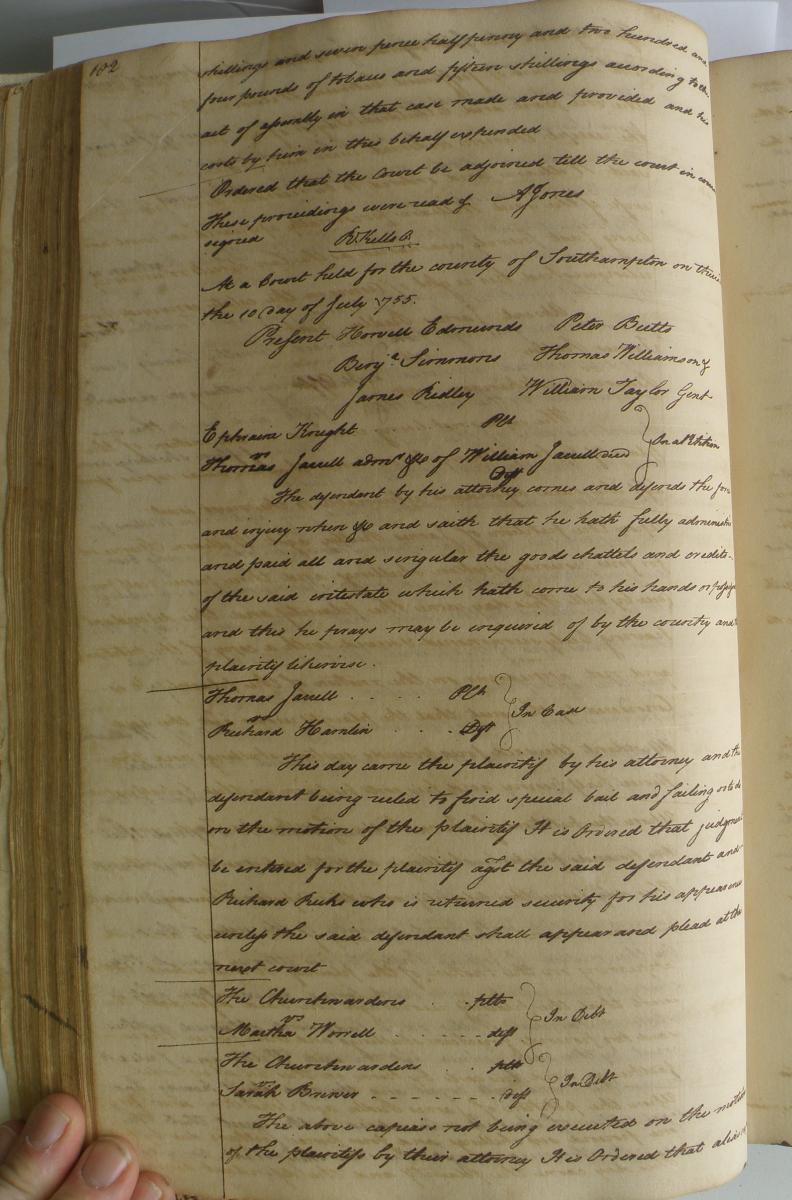 102
shillings and seven pence half penny and two hundred and
four pounds of tobacco and fifteen shillings according to the
act of assembly in that case made and provided and his
costs by him in this behalf expended
Ordered that the Court be adjoined till the court in
These proceedings were read & A Jones
signed R. Kello Ck
At a Court held for the county of Southampton on
the 10 Day of July 1755.
Present Howell Edmunds Peter Butts
Benja Simmons Thomas Williamson &
James Ridley William Taylor Gent
Ephraim Knight Plt
vs In a Petition
Thomas Jarrell admr &c of William Jarrell decd
Deft
The defendant by his attorney comes and defends the force
and injury when &c and saith that he hath fully
and paid all and singular the goods chattels and credits
of the said intestate which hath come to his hands or
and this he prays may be inquired of by the country and
plaintif likewise.
Thomas Jarrell . . . . Plt
vs In Case
Richard Hamlin . . . Deft
This day came the plaintif by his attorney and the
defendant being ruled to find special bail and failing so to do
on the motion of the plaintif It is Ordered that judgment
be entered for the plaintif agst the said defendant and
Richard Ricks who is returned security for his appearance
unless the said defendant shall appear and plead at the
next court
The Churchwardens . . . plts
vs In Debt
Martha Worrell . . . . . deft
The Churchwardens . . . plts
vs In Debt
Sarah Brewer - - - - - - - Deft
The above capias not being executed on the motion
of the plaintifs by their attorney It is Ordered that alias